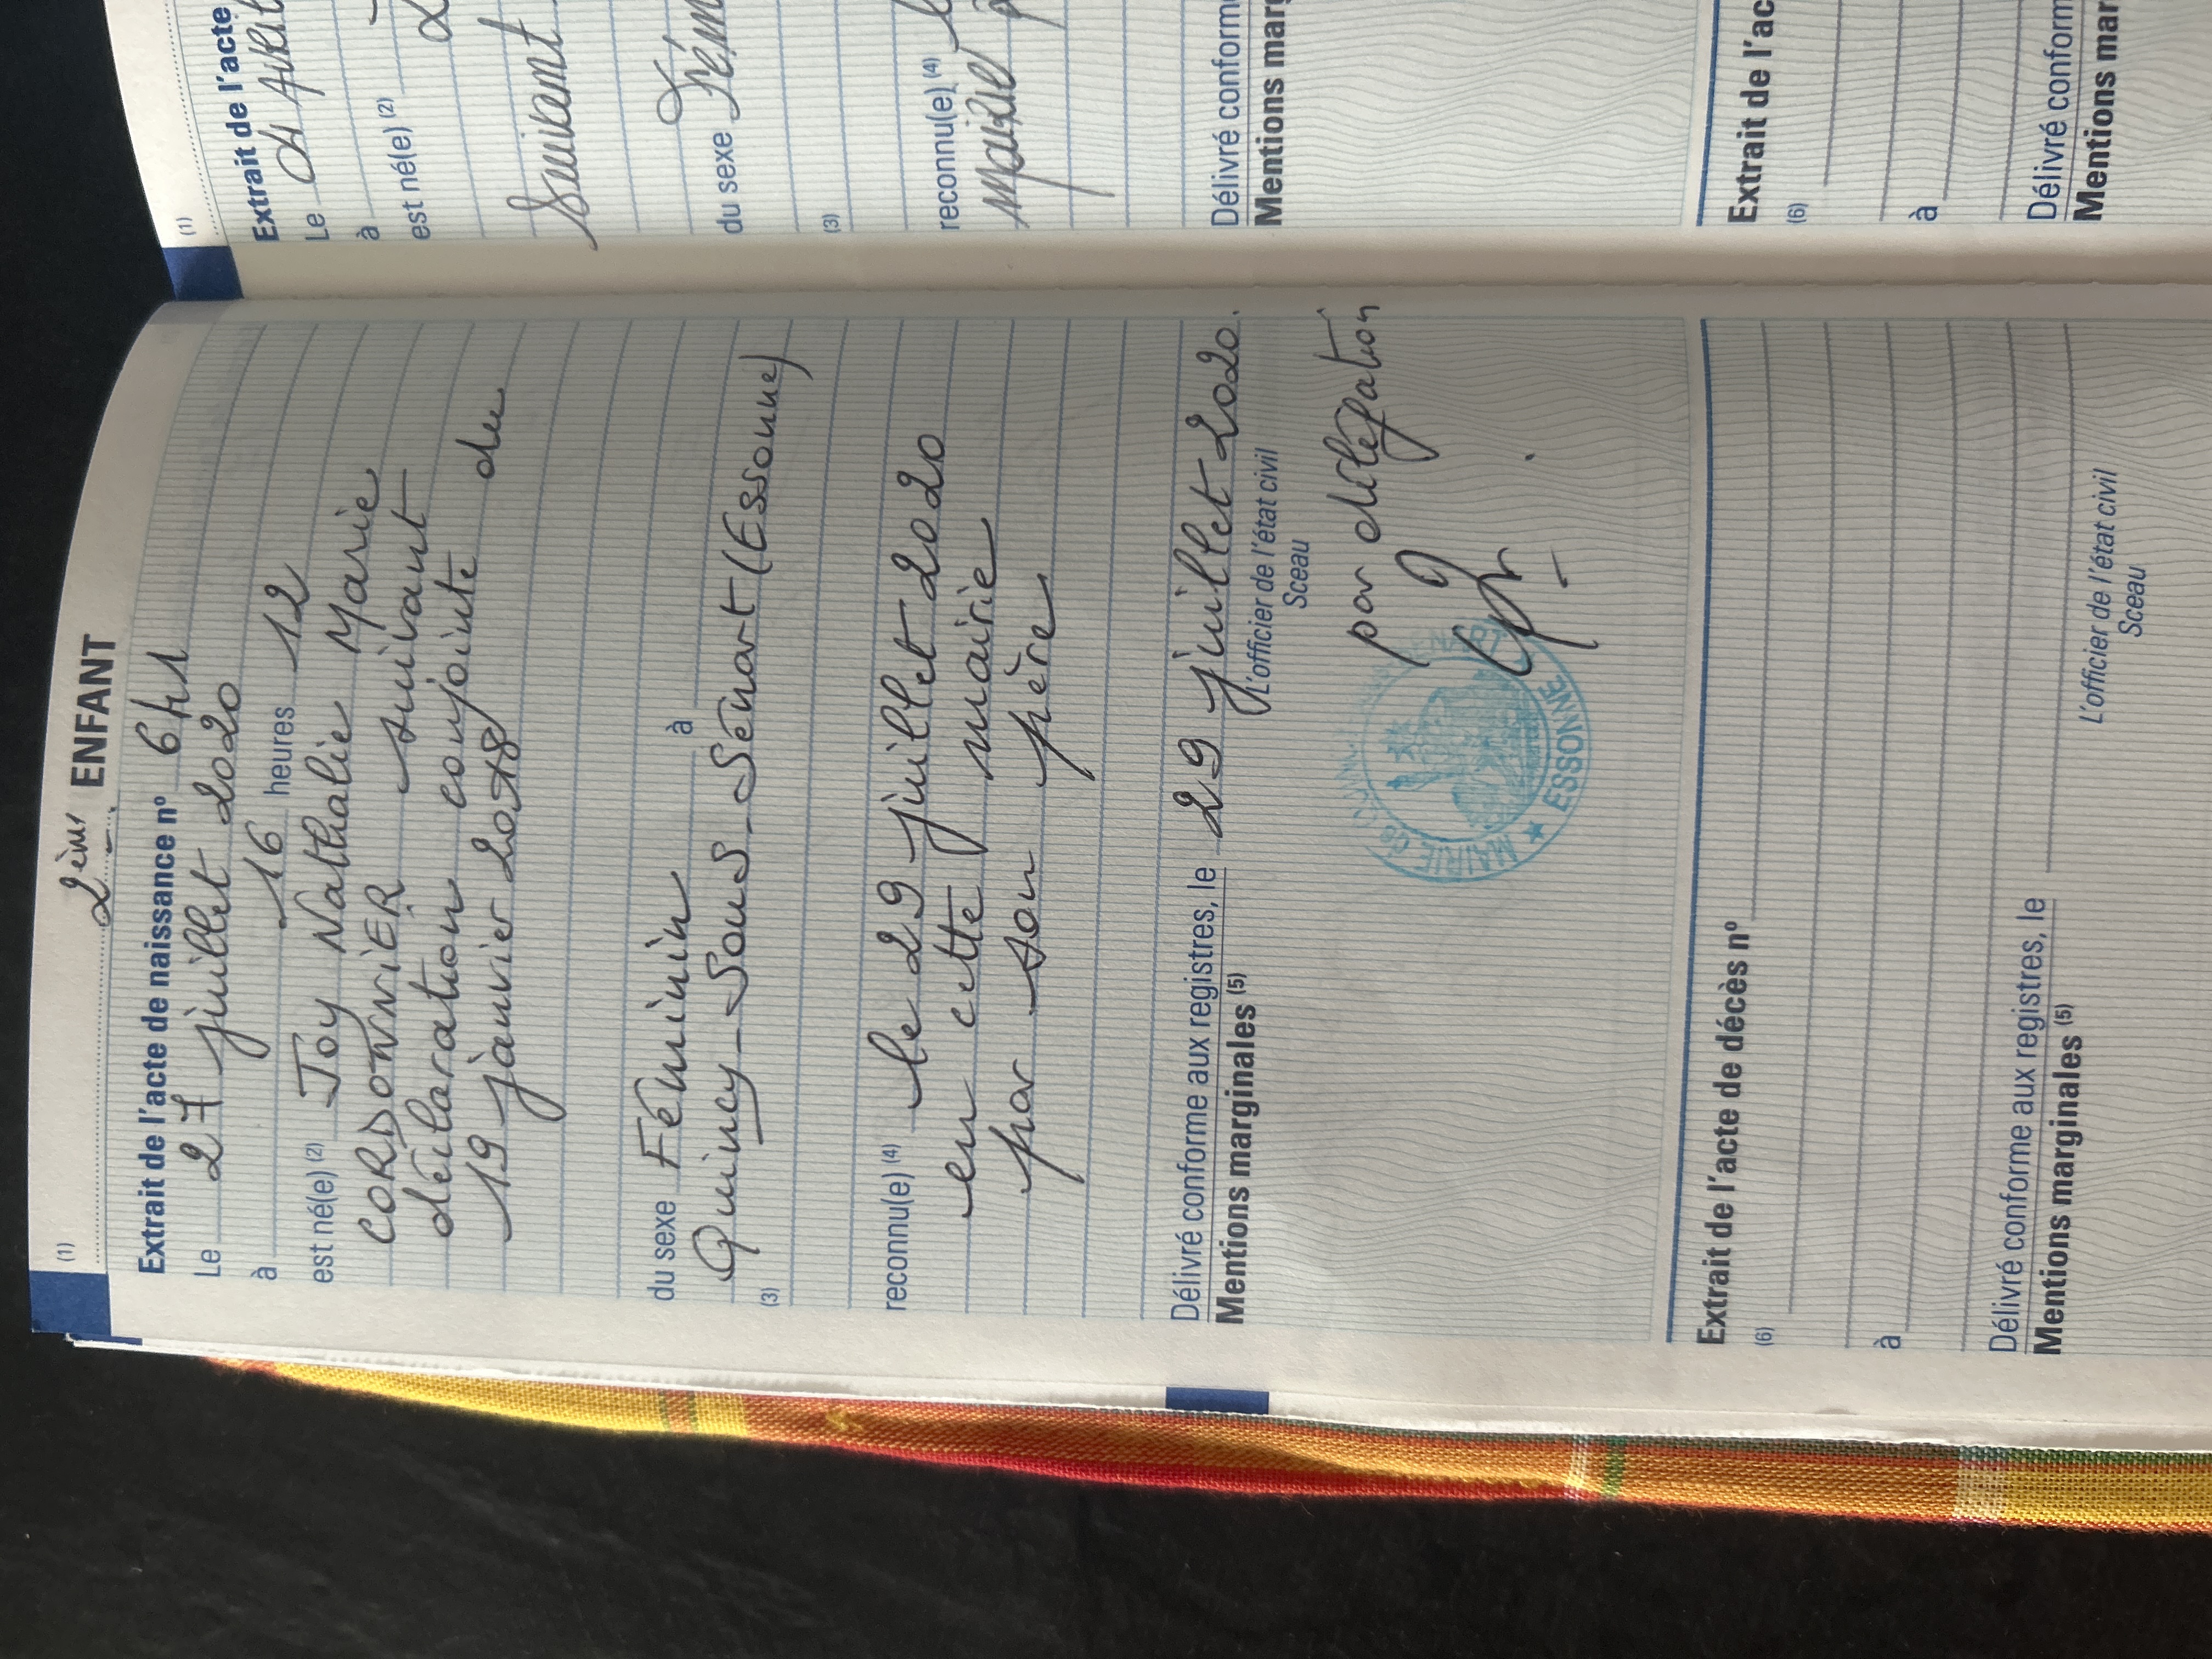 (1) 2ème ENFANT
Extrait de l'acte de naissance n° 641
Le 27 juillet 2020
à 16 heures 12
est né(e) (2) Joy Nathalie Marie
CORDONNIER suivant
déclaration conjointe du
19 janvier 2018
du sexe Féminin à
Quincy-Sous-Sénart (Essonne)
(3)
reconnu(e) (4) le 29 juillet 2020
en cette mairie
par son père
Délivré conforme aux registres, le 29 juillet 2020.
Mentions marginales (5)
L'officier de l'état civil
Sceau
par délégation
MAIRIE DE QUINCY SENART
★ ESSONNE
Extrait de l'acte de décès n°
(6)
à
Délivré conforme aux registres, le
Mentions marginales (5)
L'officier de l'état civil
Sceau
(1)
Extrait de l'acte
Le
à
est né(e) (2)
Suivant
du sexe Fém
(3)
reconnu(e) (4)
mairie
Délivré conform
Mentions marg
Extrait de l'ac
(6)
à
Délivré conform
Mentions mar